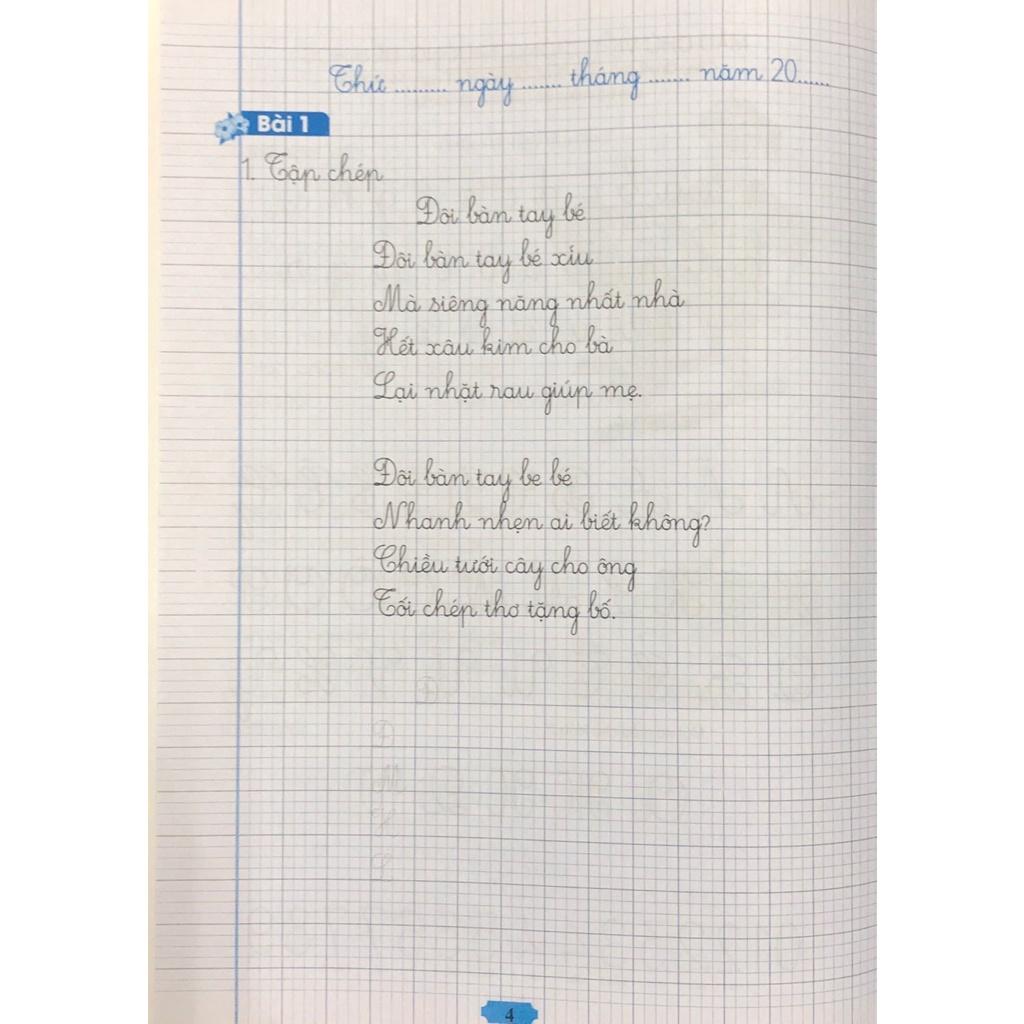 Thứ ......... ngày ....... tháng ....... năm 20......
Bài 1
1. Tập chép
Đôi bàn tay bé
Đôi bàn tay bé xíu
Mà siêng năng nhất nhà
Hết xâu kim cho bà
Lại nhặt rau giúp mẹ.
Đôi bàn tay be bé
Nhanh nhẹn ai biết không?
Chiều tưới cây cho ông
Tối chép thơ tặng bố.
Đ
Đ
M
H
L
4